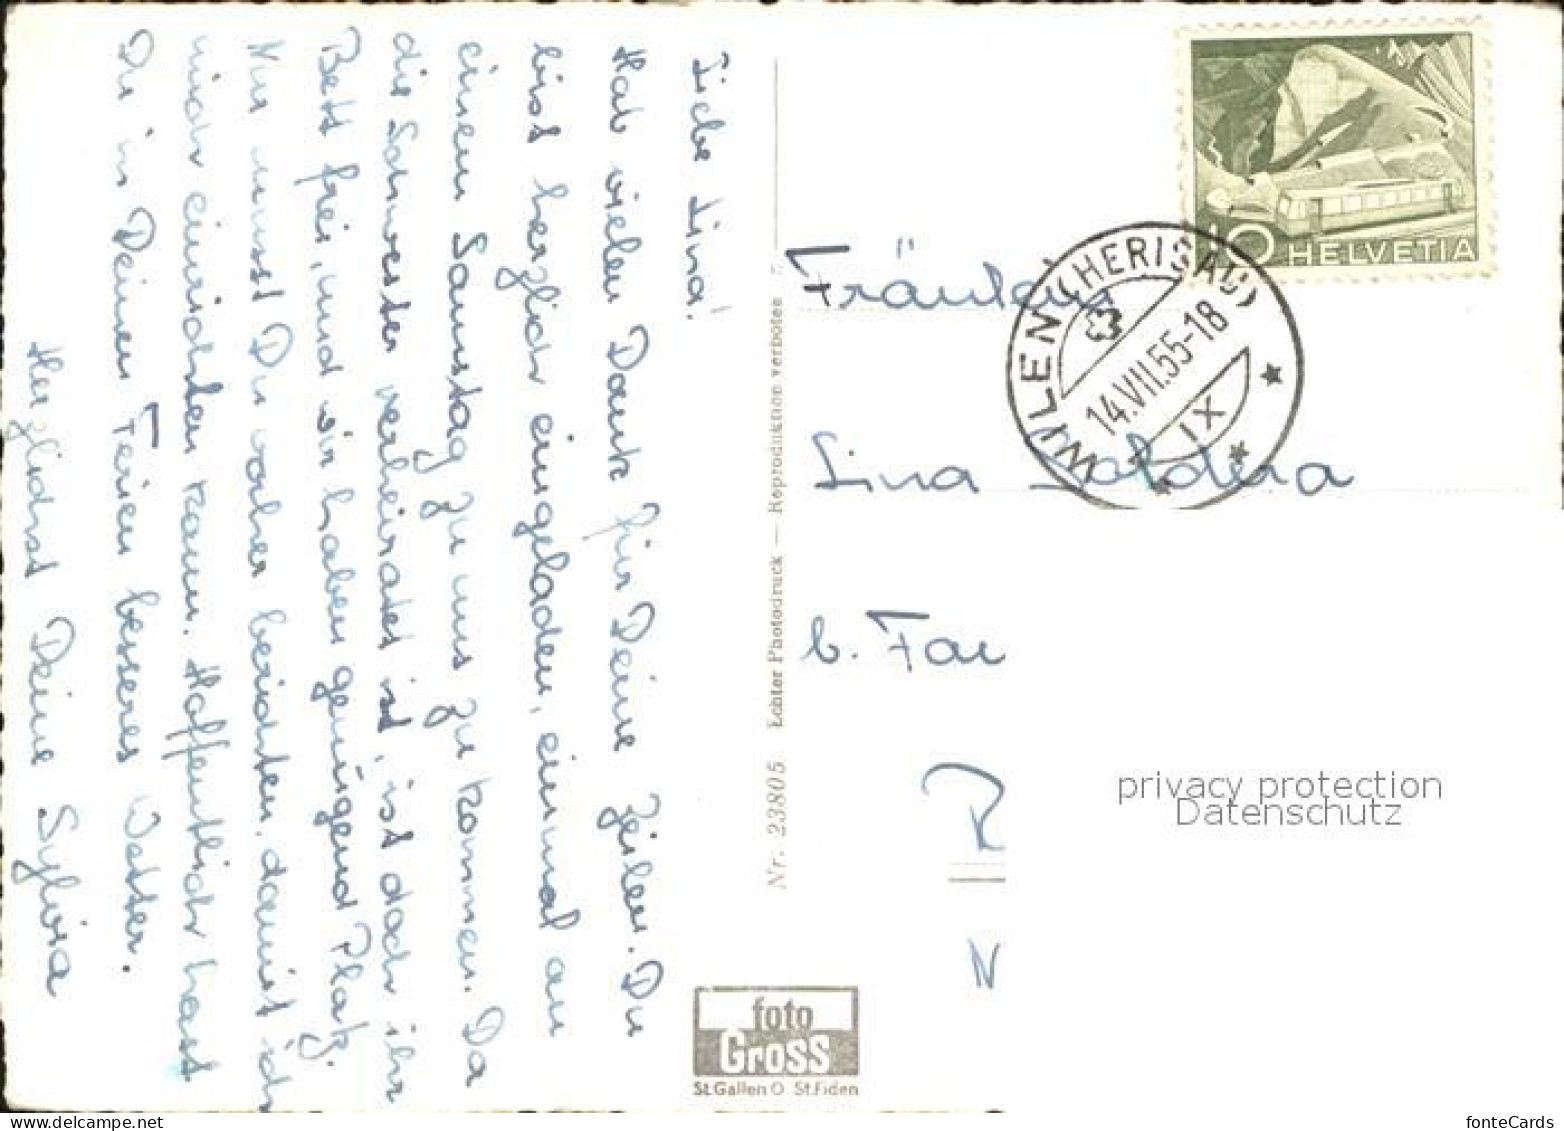 Liebe Lina!
Hab vielen Dank für Deine Zeilen. Du
bist herzlich eingeladen, einmal an
einem Samstag zu uns zu kommen. Da
die Schwester verheiratet ist, ist doch ihr
Bett frei, und wir haben genügend Platz.
Nur musst Du vorher berichten, damit ich
mich einrichten kann. Hoffentlich hast
Du in Deinen Ferien besseres Wetter.
Herzlichst Deine Sylvia
Nr. 23805 Echter Photodruck — Reproduktion verboten
foto
Gross
St.Gallen O. St.Fiden
10 HELVETIA
WILEN (HERISAU)
14.VIII.55-18
IX
Fräulein
Lina
b. Fa
R
N
privacy protection
Datenschutz
fonteCards